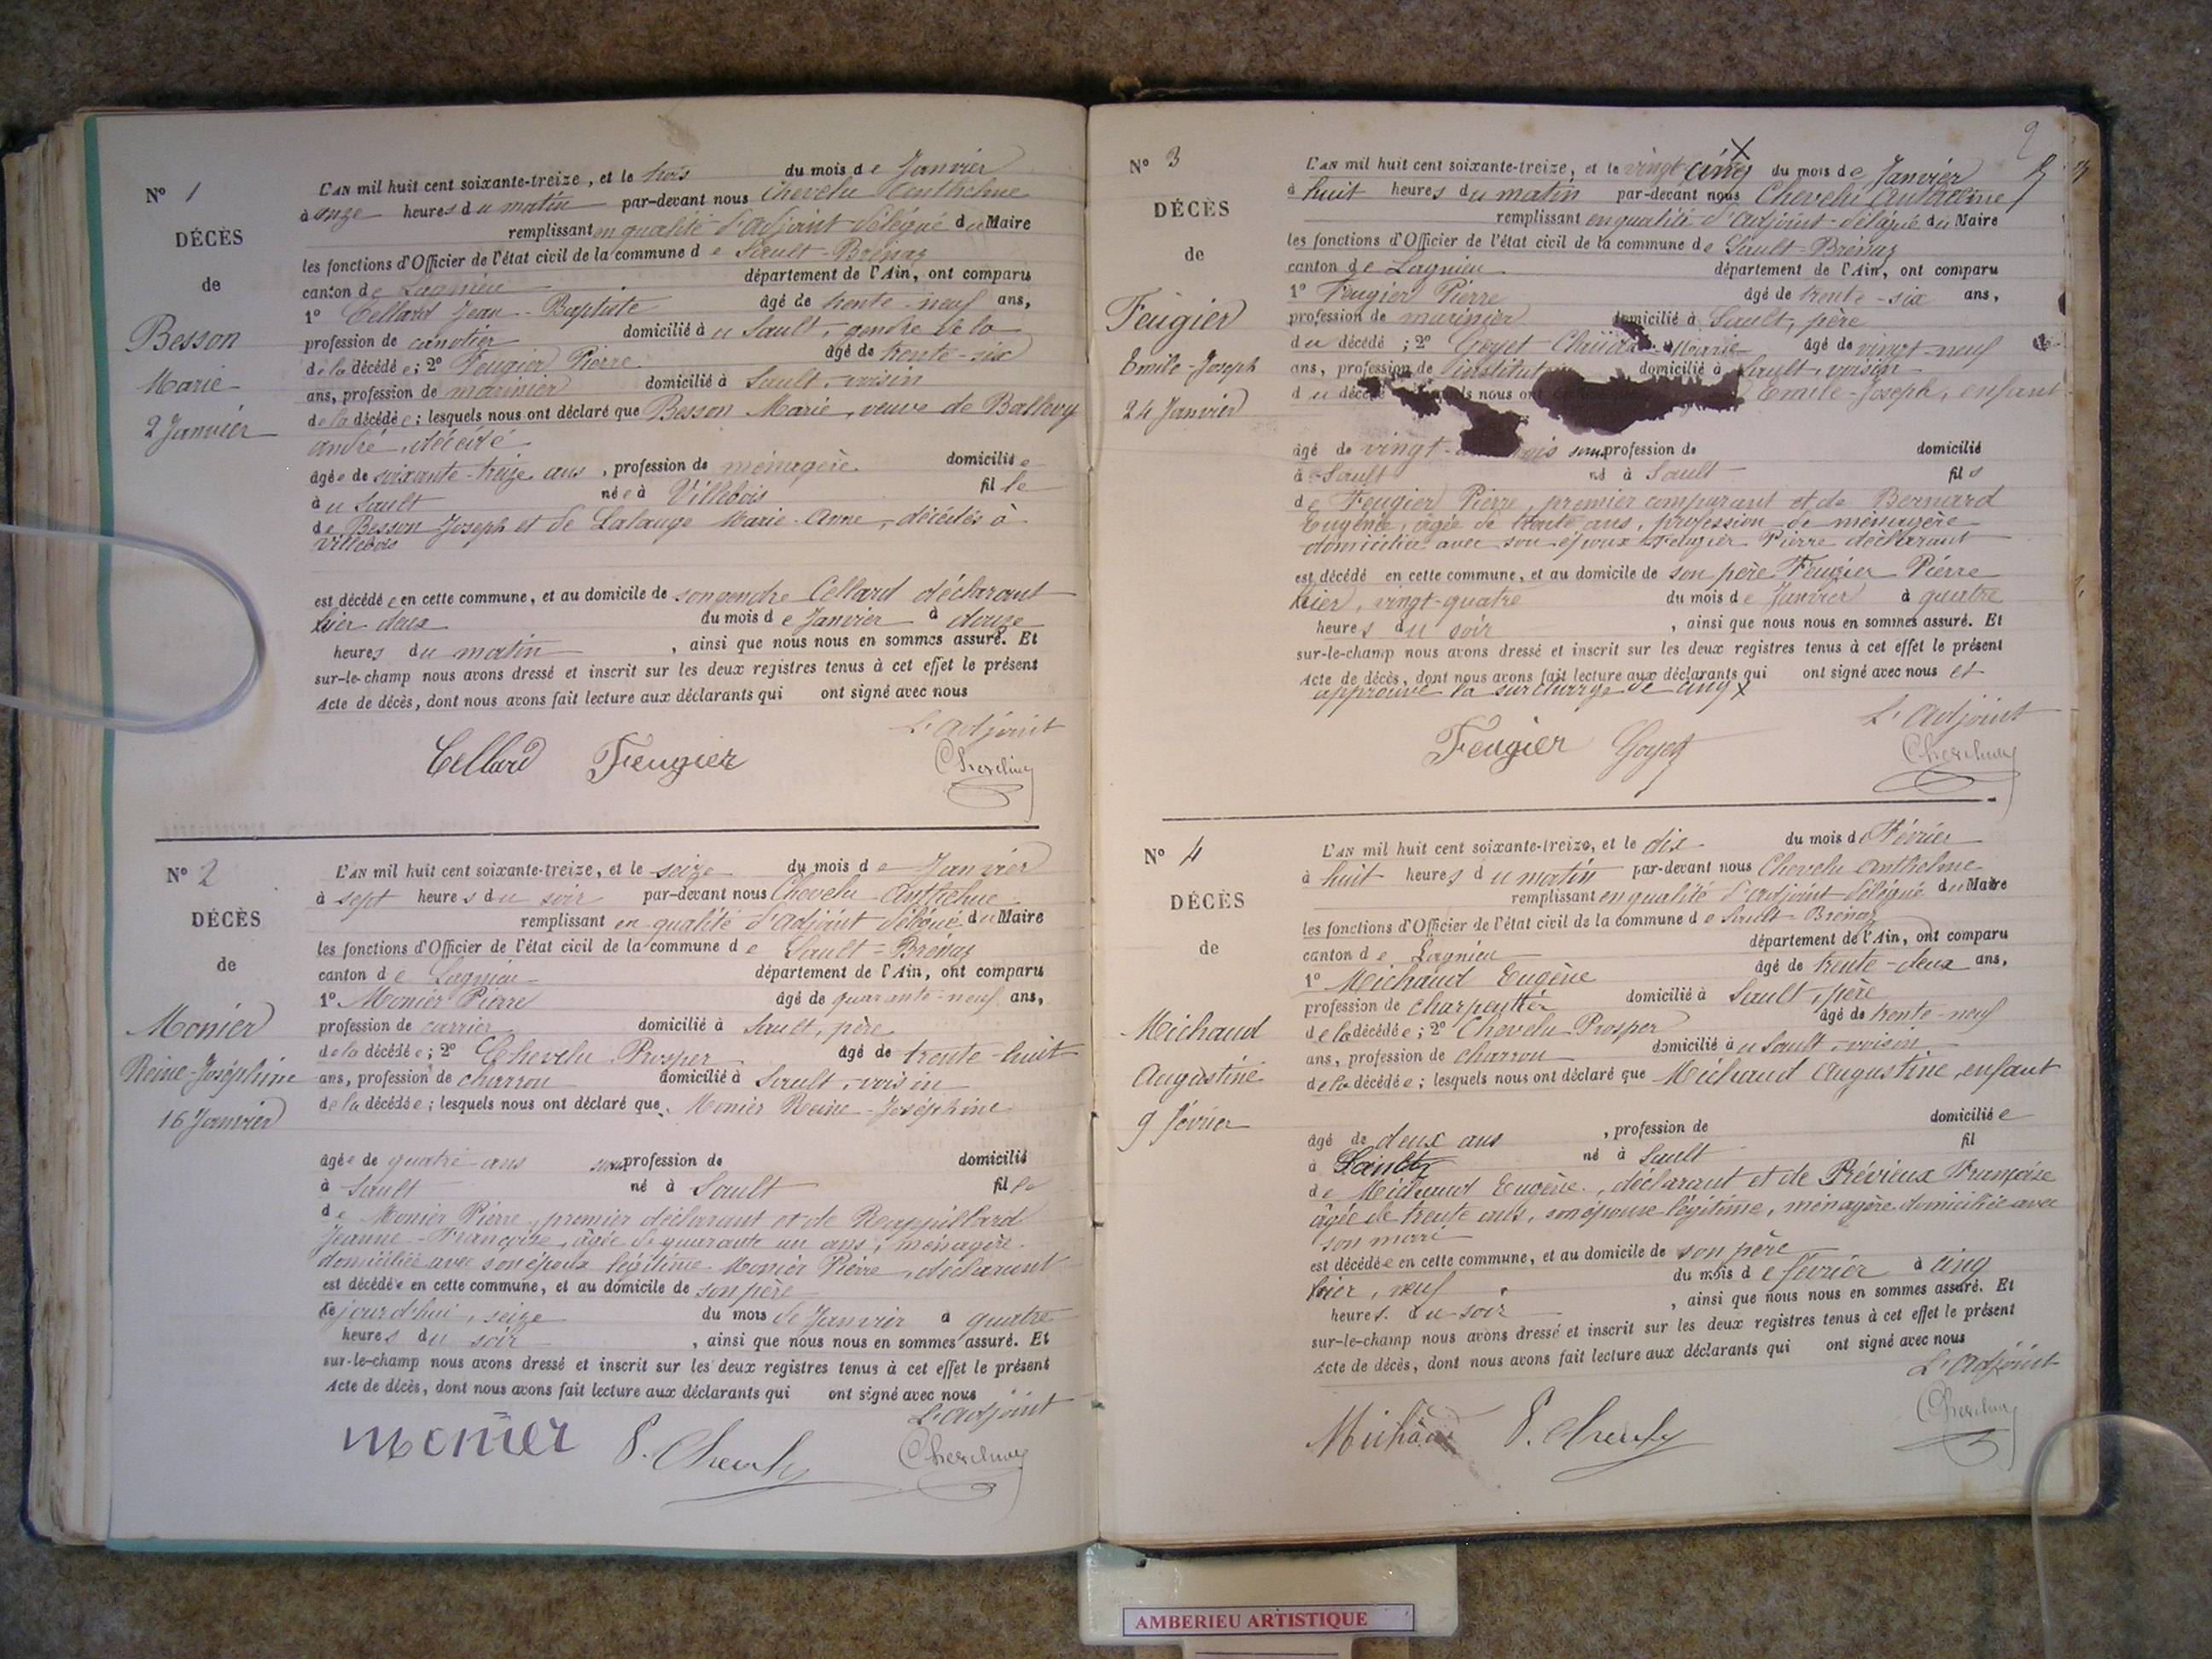 N° 1
DÉCÈS
de
Besson
Marie
2 Janvier
L'AN mil huit cent soixante-treize, et le trois du mois de Janvier
à onze heures du matin par-devant nous Chevelu Anthelme
remplissant en qualité d'adjoint délégué du Maire
les fonctions d'Officier de l'état civil de la commune de Sault-Brénaz
canton de Lagnieu département de l'Ain, ont comparu
1° Cellard Jean-Baptiste âgé de trente-neuf ans,
profession de domicilié à u Sault, gendre de la
de la décédée; 2° Feugier Pierre âgé de trente-six
ans, profession de marinier domicilié à Sault, voisin
de la décédée; lesquels nous ont déclaré que Besson Marie, veuve de
andré, décédé
âgée de soixante-treize ans, profession de ménagère domiciliée
à u Sault née à Villebois fille
de Besson Joseph et de Lalauge Marie-Anne, décédés à
Villebois
est décédée en cette commune, et au domicile de son gendre Cellard déclarant
hier deux du mois de Janvier à douze
heures du matin, ainsi que nous nous en sommes assuré. Et
sur-le-champ nous avons dressé et inscrit sur les deux registres tenus à cet effet le présent
Acte de décès, dont nous avons fait lecture aux déclarants qui ont signé avec nous
L'adjoint
Cellard Feugier
N° 2
DÉCÈS
de
Monier
Reine-Joséphine
16 Janvier
L'AN mil huit cent soixante-treize, et le seize du mois de Janvier
à sept heures du soir par-devant nous Chevelu Anthelme
remplissant en qualité d'adjoint délégué du Maire
les fonctions d'Officier de l'état civil de la commune de Sault-Brénaz
canton de Lagnieu département de l'Ain, ont comparu
1° Monier Pierre âgé de quarante-neuf ans,
profession de carrier domicilié à Sault, père
de la décédée; 2° Chevelu Prosper âgé de trente-huit
ans, profession de charron domicilié à Sault, voisin
de la décédée; lesquels nous ont déclaré que Monier Reine-Joséphine
âgée de quatre ans sans profession de domicilié
à Sault né à Sault fille
de Monier Pierre, premier déclarant et de
Jeanne-Françoise, âgée de quarante un ans, ménagère
domiciliée avec son époux légitime Monier Pierre, déclarant
est décédée en cette commune, et au domicile de son père
ce jourd'hui, seize du mois de Janvier à quatre
heures du soir, ainsi que nous nous en sommes assuré. Et
sur-le-champ nous avons dressé et inscrit sur les deux registres tenus à cet effet le présent
Acte de décès, dont nous avons fait lecture aux déclarants qui ont signé avec nous
L'adjoint
monier
N° 3
DÉCÈS
de
Feugier
Emile-Joseph
24 Janvier
L'AN mil huit cent soixante-treize, et le vingt cinq du mois de Janvier
à huit heures du matin par-devant nous Chevelu
remplissant en qualité d'adjoint-délégué du Maire
les fonctions d'Officier de l'état civil de la commune de Sault-Brénaz
canton de Lagnieu département de l'Ain, ont comparu
1° Feugier Pierre âgé de trente-six ans,
profession de marinier domicilié à Sault, père
du décédé; 2° Goyet Marie âgé de vingt-neuf
ans, profession de domicilié à Sault, voisin
du nous ont Emile-Joseph, enfant
âgé de vingt- sans profession de domicilié
à Sault né à Sault fils
de Feugier Pierre, premier comparant et de Bernard
Eugénie, âgée de trente ans, profession de ménagère
domiciliée avec son époux Feugier Pierre déclarant
est décédé en cette commune, et au domicile de son père Feugier Pierre
hier, vingt-quatre du mois de Janvier à quatre
heures du soir, ainsi que nous nous en sommes assuré. Et
sur-le-champ nous avons dressé et inscrit sur les deux registres tenus à cet effet le présent
Acte de décès, dont nous avons fait lecture aux déclarants qui ont signé avec nous et
approuvé la surcharge de cinq x
L'adjoint
Feugier Goyet
N° 4
DÉCÈS
de
Michaud
Augustine
9 février
L'AN mil huit cent soixante-treize, et le dix du mois de Février
à huit heures du matin par-devant nous Chevelu Anthelme
remplissant en qualité d'adjoint-délégué du Maire
les fonctions d'Officier de l'état civil de la commune de Sault-Brénaz
canton de Lagnieu département de l'Ain, ont comparu
1° Michaud Eugène âgé de trente-deux ans,
profession de charpentier domicilié à Sault, père
de la décédée; 2° Chevelu Prosper âgé de trente-neuf
ans, profession de charron domicilié à u Sault, voisin
de la décédée; lesquels nous ont déclaré que Michaud Augustine, enfant
âgé de deux ans, profession de domiciliée
à Sault né à Sault fil
de Michaud Eugène, déclarant et de Prévieux Françoise
âgée de trente ans, son épouse légitime, ménagère domiciliée avec
son mari
est décédée en cette commune, et au domicile de son père
hier, neuf du mois de février à cinq
heures du soir, ainsi que nous nous en sommes assuré. Et
sur-le-champ nous avons dressé et inscrit sur les deux registres tenus à cet effet le présent
Acte de décès, dont nous avons fait lecture aux déclarants qui ont signé avec nous
L'adjoint
Michaud
AMBERIEU ARTISTIQUE